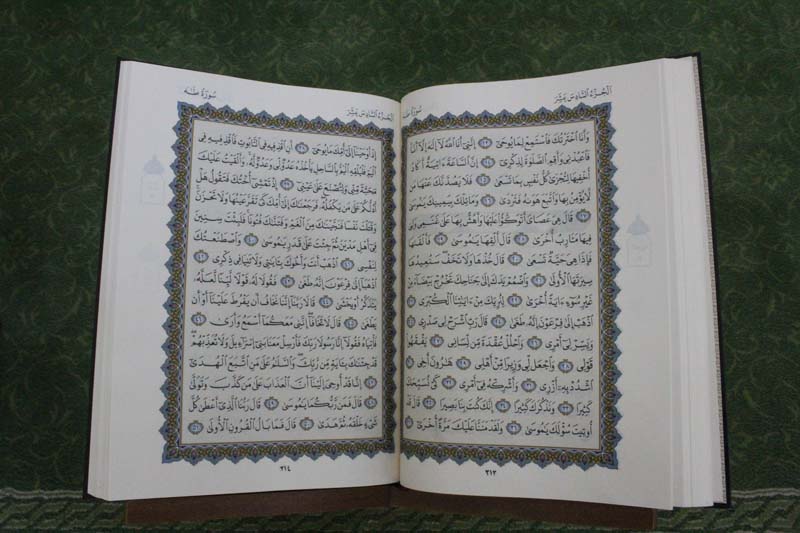 ٱلْجُزْءُ ٱلسَّادِسَ عَشَرَ
سُورَةُ طه
وَأَنَا ٱخْتَرْتُكَ فَٱسْتَمِعْ لِمَا يُوحَىٰٓ ١٣ إِنَّنِىٓ أَنَا ٱللَّهُ لَآ إِلَٰهَ إِلَّآ أَنَا۠
فَٱعْبُدْنِى وَأَقِمِ ٱلصَّلَوٰةَ لِذِكْرِىٓ ١٤ إِنَّ ٱلسَّاعَةَ ءَاتِيَةٌ أَكَادُ
أُخْفِيهَا لِتُجْزَىٰ كُلُّ نَفْسٍۭ بِمَا تَسْعَىٰ ١٥ فَلَا يَصُدَّنَّكَ عَنْهَا مَن
لَّا يُؤْمِنُ بِهَا وَٱتَّبَعَ هَوَىٰهُ فَتَرْدَىٰ ١٦ وَمَا تِلْكَ بِيَمِينِكَ يَٰمُوسَىٰ
١٧ قَالَ هِىَ عَصَاىَ أَتَوَكَّؤُا۟ عَلَيْهَا وَأَهُشُّ بِهَا عَلَىٰ غَنَمِى وَلِىَ
فِيهَا مَـَٔارِبُ أُخْرَىٰ ١٨ قَالَ أَلْقِهَا يَٰمُوسَىٰ ١٩ فَأَلْقَىٰهَا
فَإِذَا هِىَ حَيَّةٌ تَسْعَىٰ ٢٠ قَالَ خُذْهَا وَلَا تَخَفْ سَنُعِيدُهَا
سِيرَتَهَا ٱلْأُولَىٰ ٢١ وَٱضْمُمْ يَدَكَ إِلَىٰ جَنَاحِكَ تَخْرُجْ بَيْضَآءَ مِنْ
غَيْرِ سُوٓءٍ ءَايَةً أُخْرَىٰ ٢٢ لِنُرِيَكَ مِنْ ءَايَٰتِنَا ٱلْكُبْرَى ٢٣
ٱذْهَبْ إِلَىٰ فِرْعَوْنَ إِنَّهُۥ طَغَىٰ ٢٤ قَالَ رَبِّ ٱشْرَحْ لِى صَدْرِى ٢٥
وَيَسِّرْ لِىٓ أَمْرِى ٢٦ وَٱحْلُلْ عُقْدَةً مِّن لِّسَانِى ٢٧ يَفْقَهُوا۟
قَوْلِى ٢٨ وَٱجْعَل لِّى وَزِيرًا مِّنْ أَهْلِى ٢٩ هَٰرُونَ أَخِى ٣٠
ٱشْدُدْ بِهِۦٓ أَزْرِى ٣١ وَأَشْرِكْهُ فِىٓ أَمْرِى ٣٢ كَىْ نُسَبِّحَكَ
كَثِيرًا ٣٣ وَنَذْكُرَكَ كَثِيرًا ٣٤ إِنَّكَ كُنتَ بِنَا بَصِيرًا ٣٥ قَالَ قَدْ
أُوتِيتَ سُؤْلَكَ يَٰمُوسَىٰ ٣٦ وَلَقَدْ مَنَنَّا عَلَيْكَ مَرَّةً أُخْرَىٰٓ ٣٧
٣١٣
ٱلْجُزْءُ ٱلسَّادِسَ عَشَرَ
سُورَةُ طه
إِذْ أَوْحَيْنَآ إِلَىٰٓ أُمِّكَ مَا يُوحَىٰٓ ٣٨ أَنِ ٱقْذِفِيهِ فِى ٱلتَّابُوتِ فَٱقْذِفِيهِ فِى
ٱلْيَمِّ فَلْيُلْقِهِ ٱلْيَمُّ بِٱلسَّاحِلِ يَأْخُذْهُ عَدُوٌّ لِّى وَعَدُوٌّ لَّهُۥ وَأَلْقَيْتُ عَلَيْكَ
مَحَبَّةً مِّنِّى وَلِتُصْنَعَ عَلَىٰ عَيْنِىٓ ٣٩ إِذْ تَمْشِىٓ أُخْتُكَ فَتَقُولُ هَلْ
أَدُلُّكُمْ عَلَىٰ مَن يَكْفُلُهُۥ فَرَجَعْنَٰكَ إِلَىٰٓ أُمِّكَ كَىْ تَقَرَّ عَيْنُهَا وَلَا تَحْزَنَ
وَقَتَلْتَ نَفْسًا فَنَجَّيْنَٰكَ مِنَ ٱلْغَمِّ وَفَتَنَّٰكَ فُتُونًا فَلَبِثْتَ سِنِينَ
فِىٓ أَهْلِ مَدْيَنَ ثُمَّ جِئْتَ عَلَىٰ قَدَرٍ يَٰمُوسَىٰ ٤٠ وَٱصْطَنَعْتُكَ
لِنَفْسِى ٤١ ٱذْهَبْ أَنتَ وَأَخُوكَ بِـَٔايَٰتِى وَلَا تَنِيَا فِى ذِكْرِى ٤٢
ٱذْهَبَآ إِلَىٰ فِرْعَوْنَ إِنَّهُۥ طَغَىٰ ٤٣ فَقُولَا لَهُۥ قَوْلًا لَّيِّنًا لَّعَلَّهُۥ
يَتَذَكَّرُ أَوْ يَخْشَىٰ ٤٤ قَالَا رَبَّنَآ إِنَّنَا نَخَافُ أَن يَفْرُطَ عَلَيْنَآ أَوْ أَن
يَطْغَىٰ ٤٥ قَالَ لَا تَخَافَآ إِنَّنِى مَعَكُمَآ أَسْمَعُ وَأَرَىٰ ٤٦
فَأْتِيَاهُ فَقُولَآ إِنَّا رَسُولَا رَبِّكَ فَأَرْسِلْ مَعَنَا بَنِىٓ إِسْرَٰٓءِيلَ وَلَا تُعَذِّبْهُمْ
قَدْ جِئْنَٰكَ بِـَٔايَةٍ مِّن رَّبِّكَ وَٱلسَّلَٰمُ عَلَىٰ مَنِ ٱتَّبَعَ ٱلْهُدَىٰٓ
٤٧ إِنَّا قَدْ أُوحِىَ إِلَيْنَآ أَنَّ ٱلْعَذَابَ عَلَىٰ مَن كَذَّبَ وَتَوَلَّىٰ
٤٨ قَالَ فَمَن رَّبُّكُمَا يَٰمُوسَىٰ ٤٩ قَالَ رَبُّنَا ٱلَّذِىٓ أَعْطَىٰ كُلَّ
شَىْءٍ خَلْقَهُۥ ثُمَّ هَدَىٰ ٥٠ قَالَ فَمَا بَالُ ٱلْقُرُونِ ٱلْأُولَىٰ ٥١
٣١٤